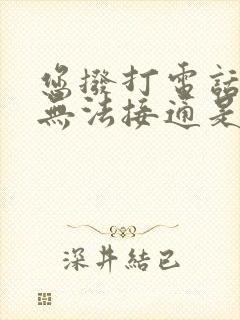 您撥打電話
無法接通是
深井結己